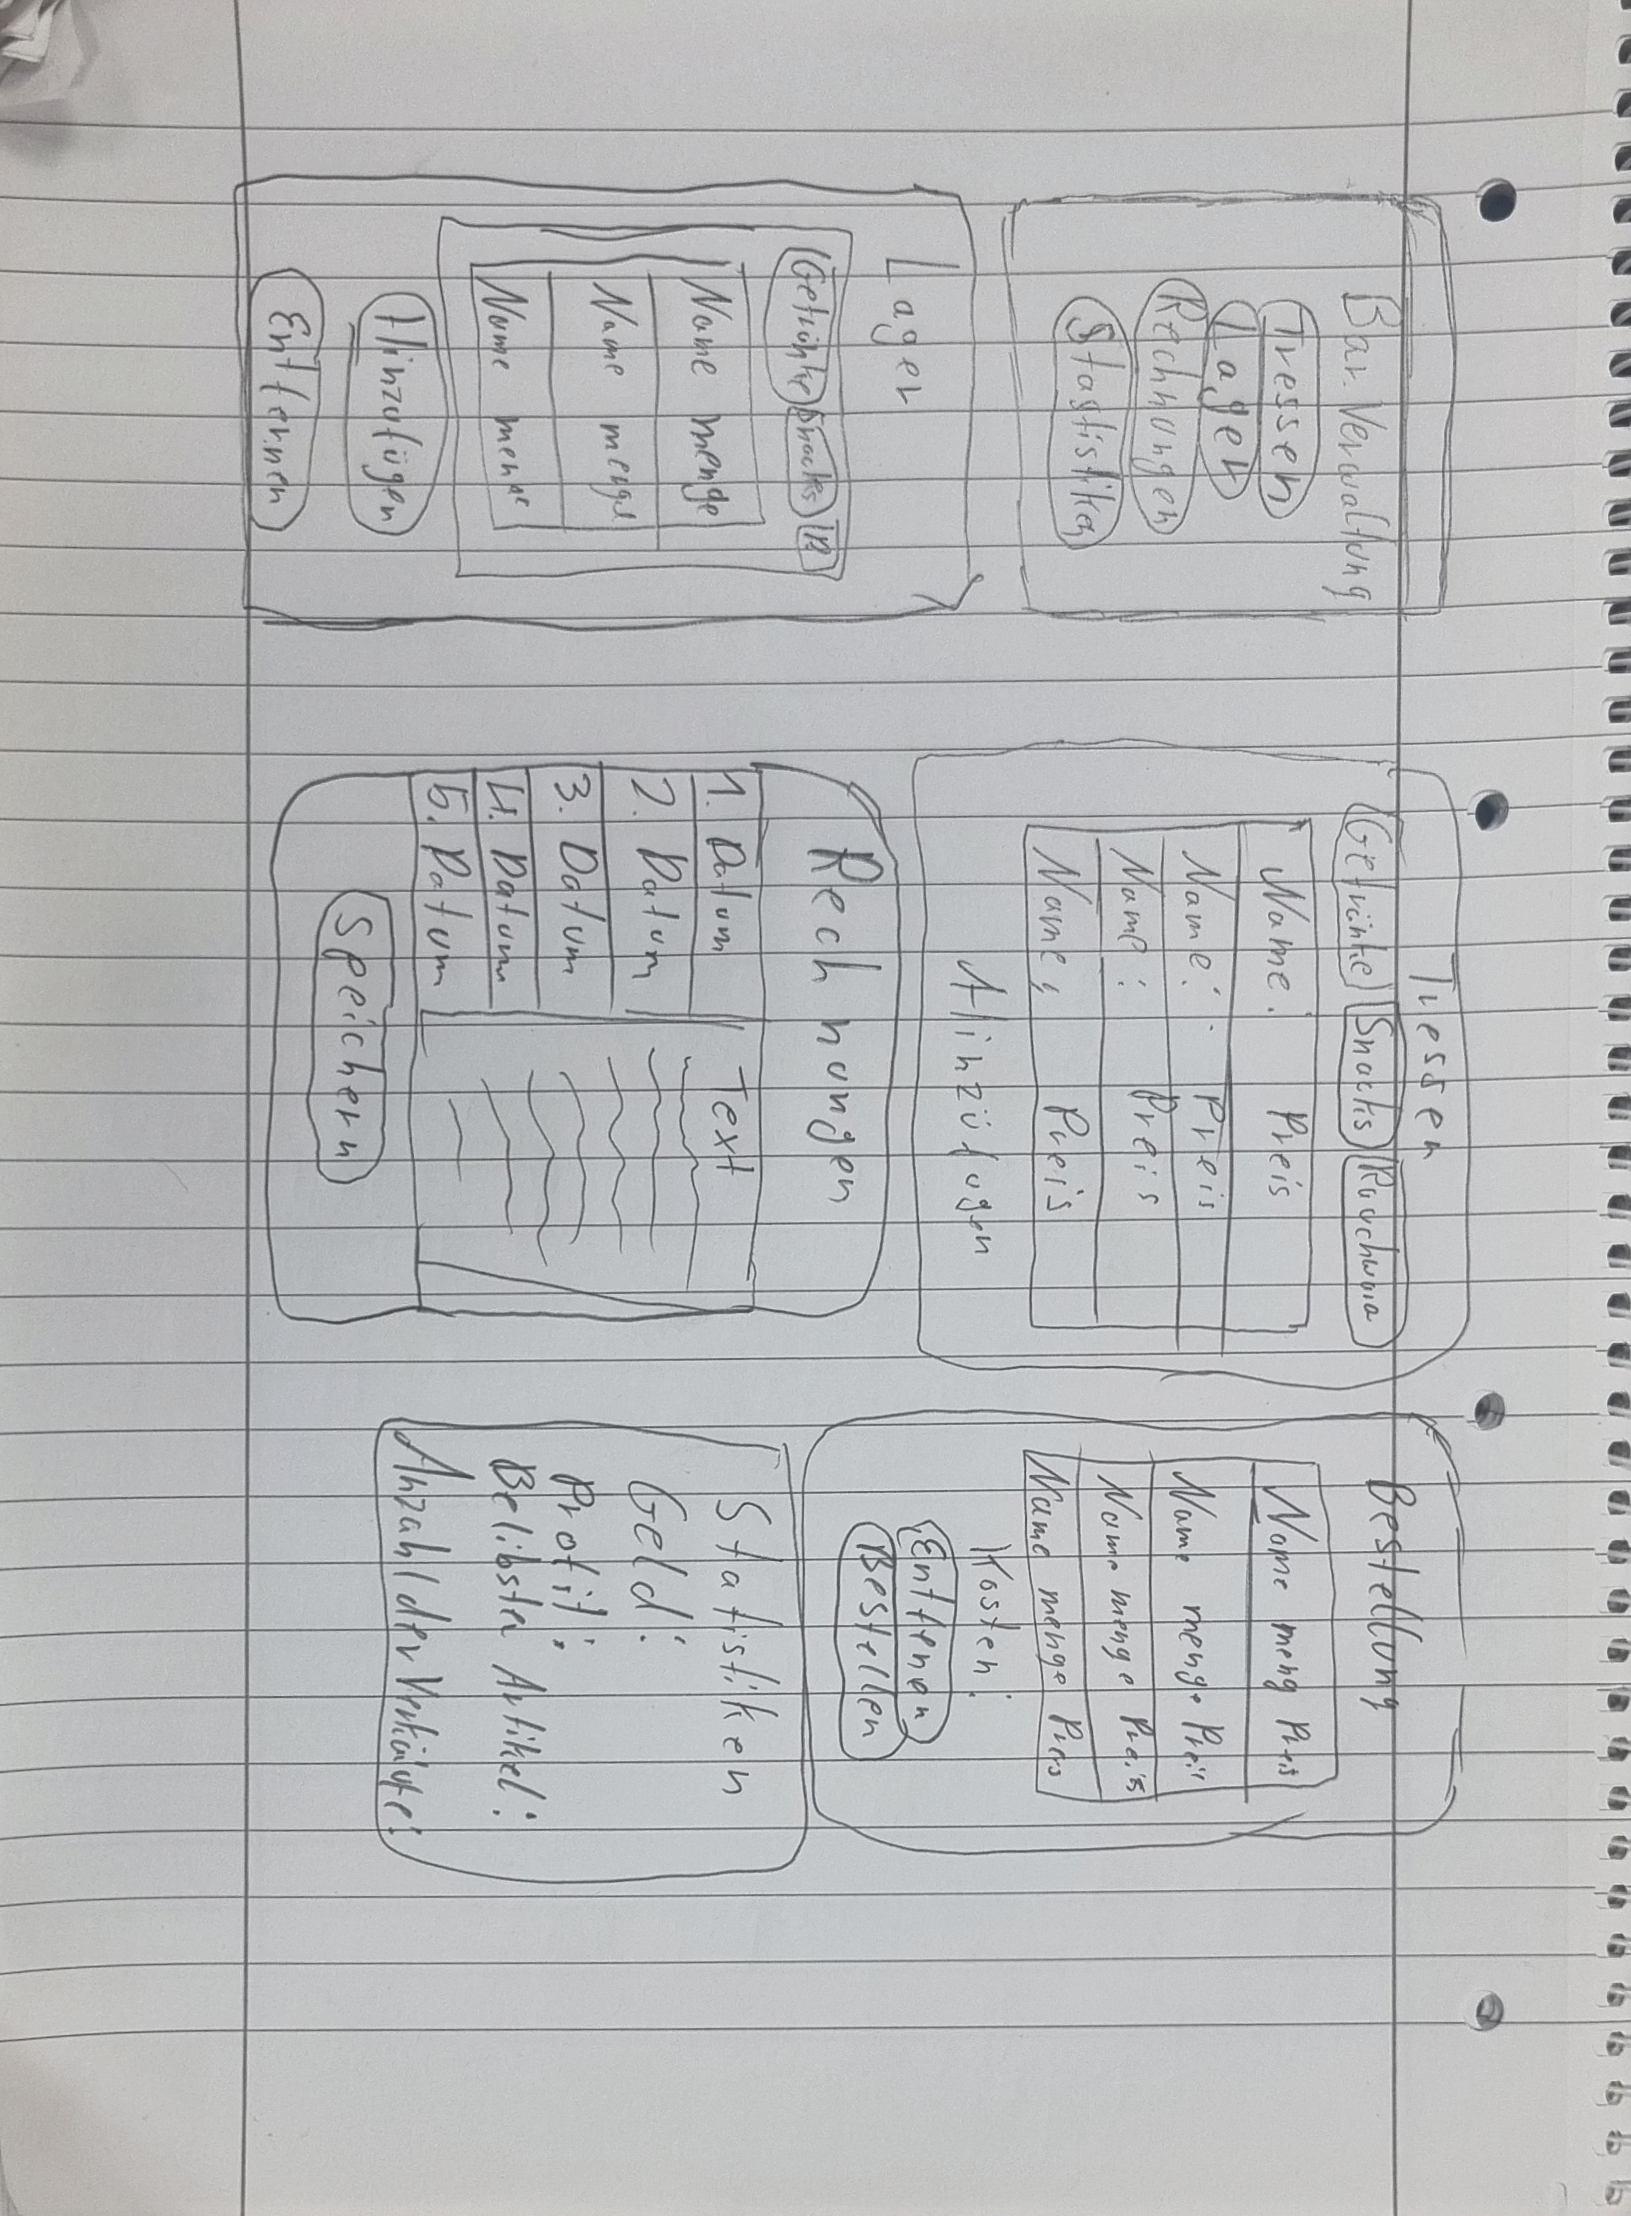 Bar. Verwaltung
Tressen
Lager
Rechnungen
Stastistiken
Lager
Getränke Snacks R
Name menge
Name menge
Name menge
Hinzufügen
Entfernen
Tressen
Getränke Snacks Rauchwara
Name: Preis
Name: Preis
Name: Preis
Name: Preis
Hinzüfugen
Rechnungen
1. Datum Text
2. Datum
3. Datum
4. Datum
5. Datum
Speichern
Bestellung
Name meng Preis
Name menge Preis
Name menge Preis
Name menge Preis
Kosten:
Entfenen
Bestellen
Statistiken
Geld:
Profit:
Belibster Artikel:
Anzahl der Verkäufe: